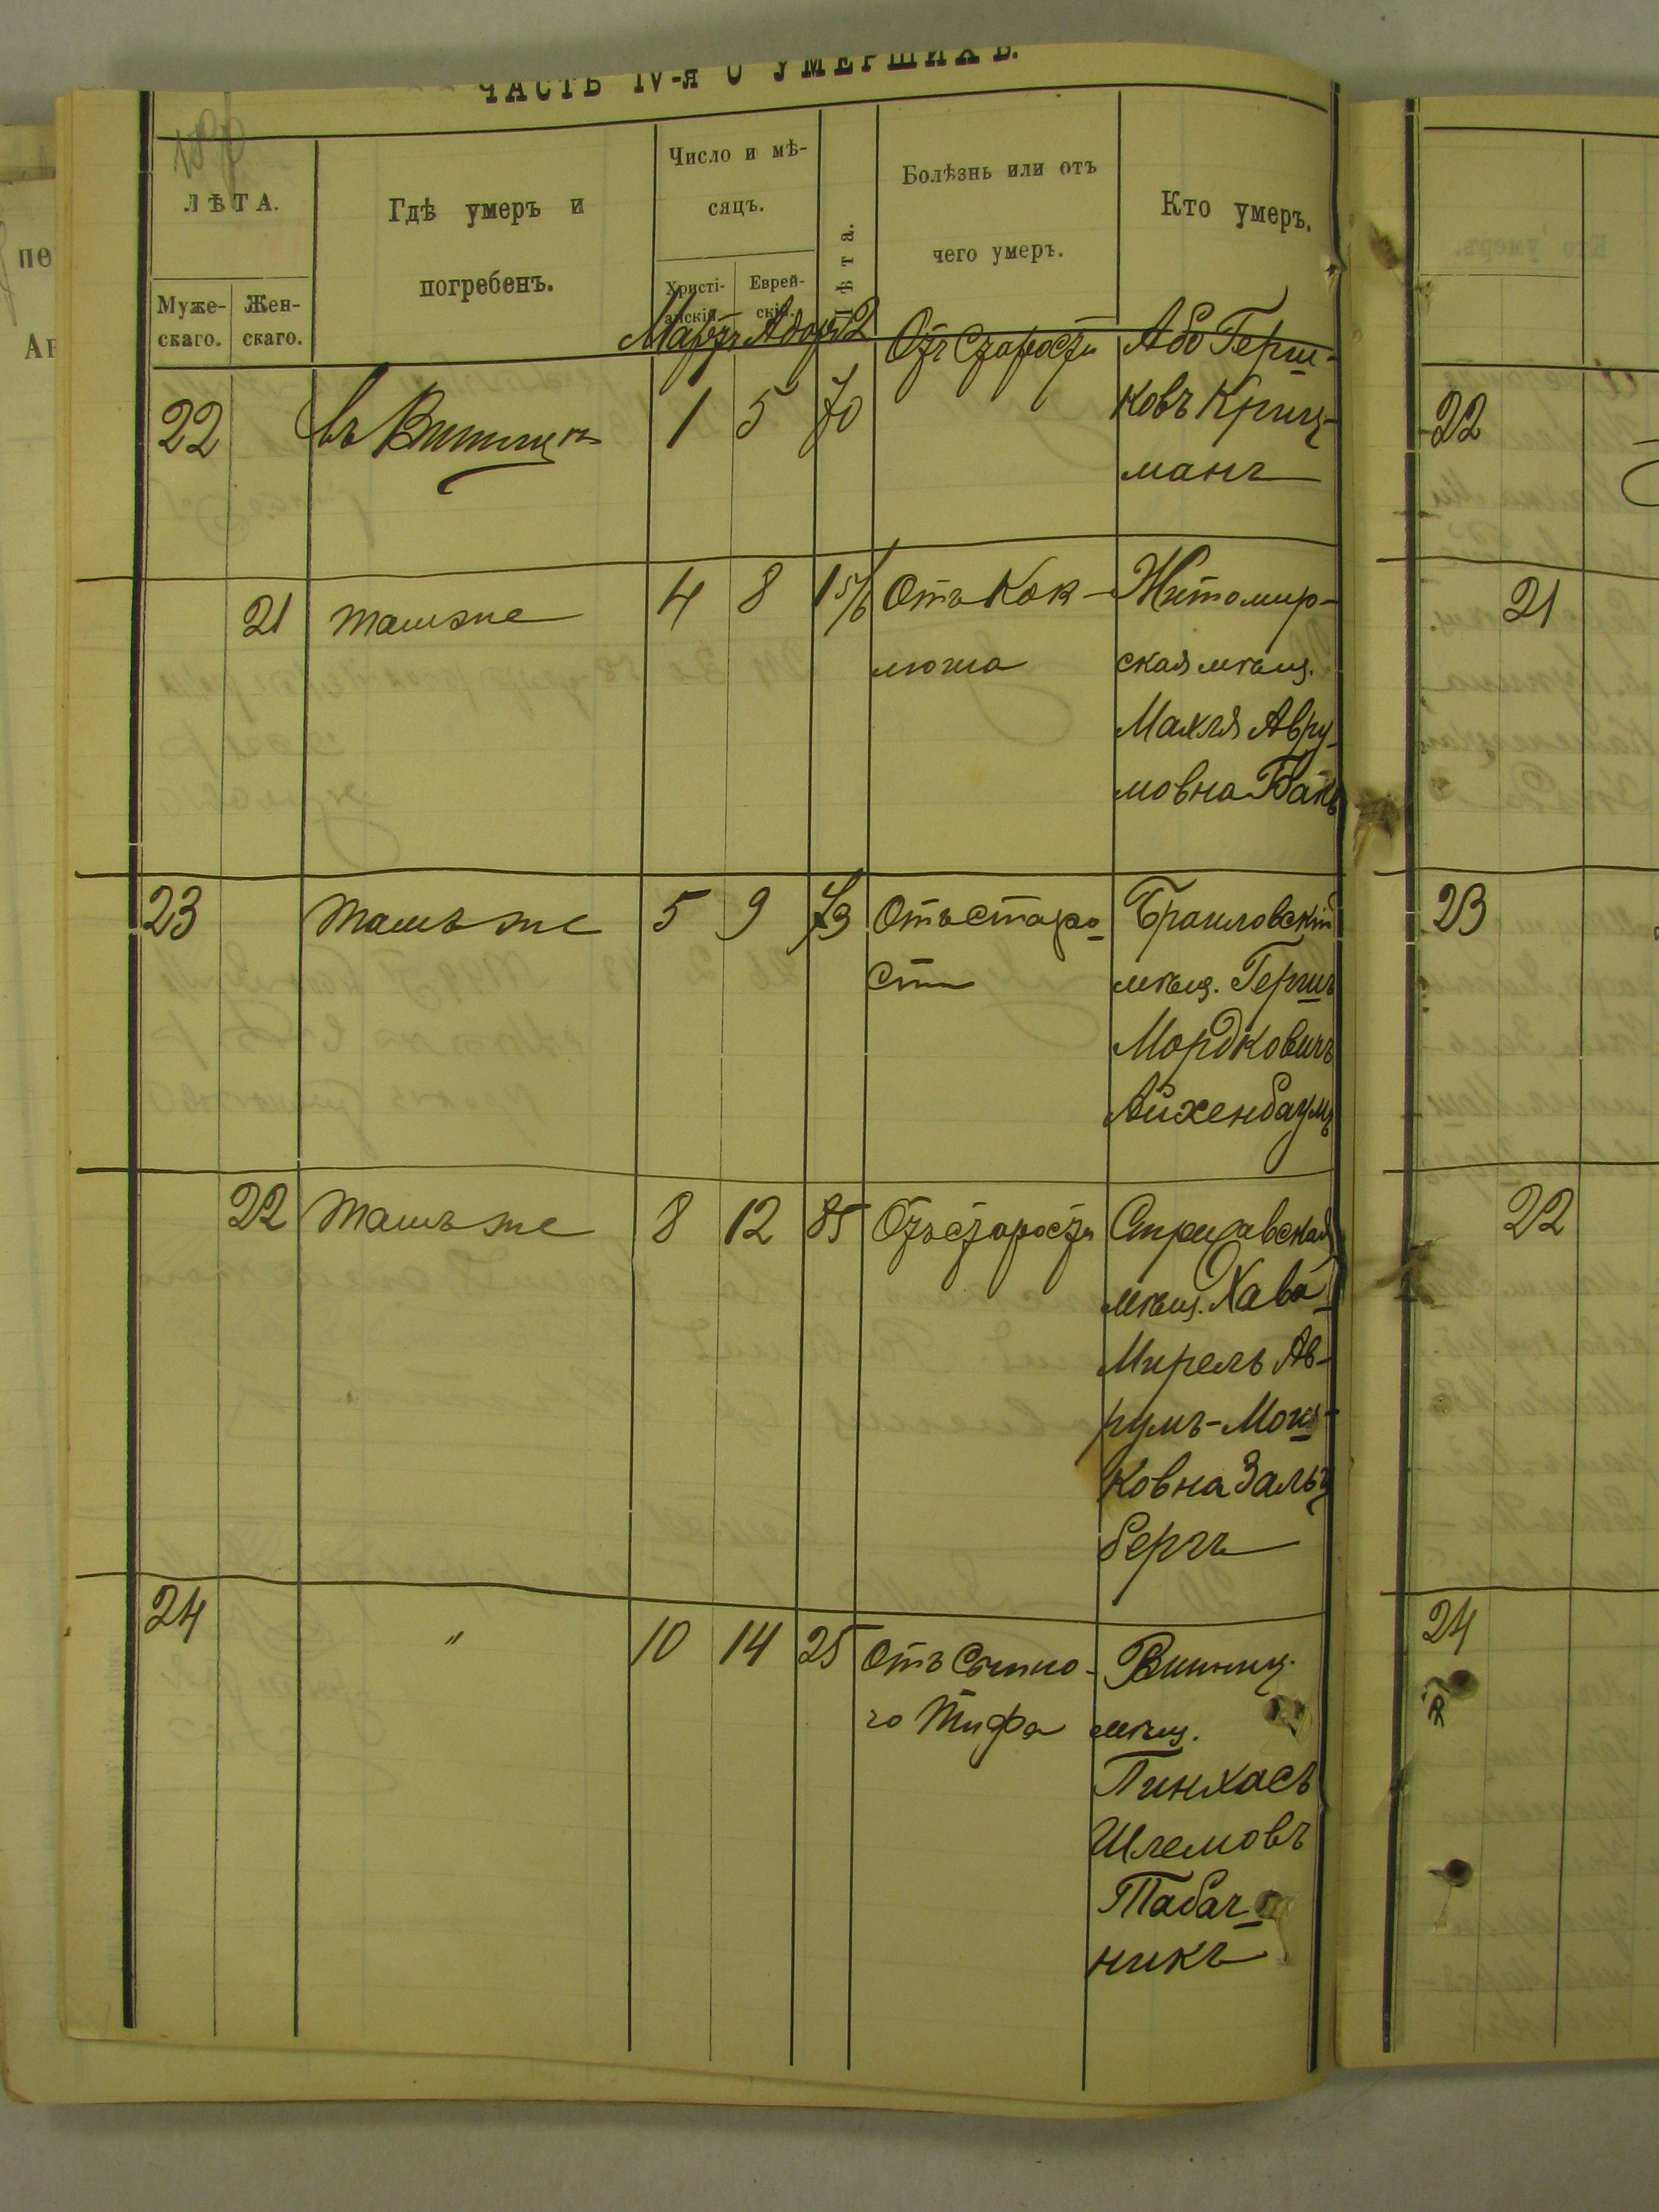 ЧАСТЬ IV-я О УМЕРШИХЪ.
ЛѢТА.
Муже-
скаго.
Жен-
скаго.
Гдѣ умеръ и
погребенъ.
Число и мѣ-
сяцъ.
Христі-
анскій
Еврей-
скій.
Лѣта.
Болѣзнь или отъ
чего умеръ.
Кто умеръ.
Мартъ Адоръ 2
22 въ Винницѣ 1 5 70 Отъ Старости Або Герш-
ковъ Криц-
манъ
21 тамже 4 8 1 5/6 Отъ Кок-
люша
Житомир-
ская мѣщ.
Махля Авру-
мовна Банъ
23 тамъ же 5 9 73 Отъ старо-
сти
Браиловскій
мѣщ. Гершъ
Мордковичъ
Айхенбаумъ
22 тамъ же 8 12 85 Отъ старости Стрижавская
мѣщ. Хава
Мирель Ав-
румъ-Мош-
ковна Зальц
бергъ
24 " 10 14 25 Отъ Сыпно-
го Тифа
Винниц.
мѣщ.
Пинхасъ
Шлемовъ
Табач-
никъ
Кто умеръ.
22
21
23
22
24